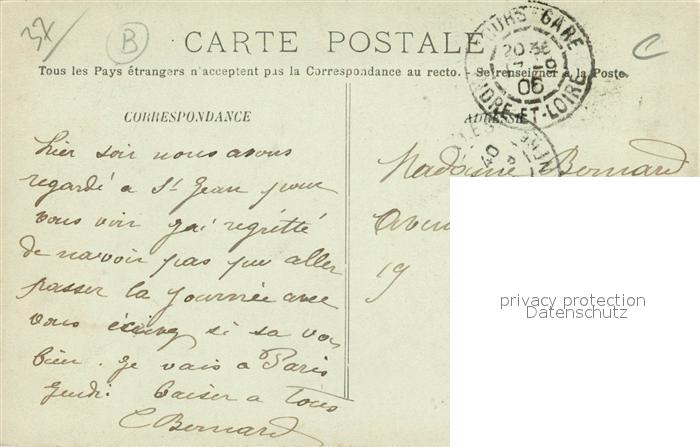 37
B
C
CARTE POSTALE
Tous les Pays étrangers n'acceptent pas la Correspondance au recto. - Se renseigner à la Poste.
TOURS-GARE
20
06
INDRE-ET-LOIRE
CORRESPONDANCE
ADRESSE
hier soir nous avons
regardé a St Jean pour
vous voir j'ai regretté
de navoir pas pu aller
passer la journée avec
vous si sa va
bien. je vais à Paris
Jeudi. baiser a Tous
C Bernard
Madame Bernard
Aven
19
privacy protection
Datenschutz